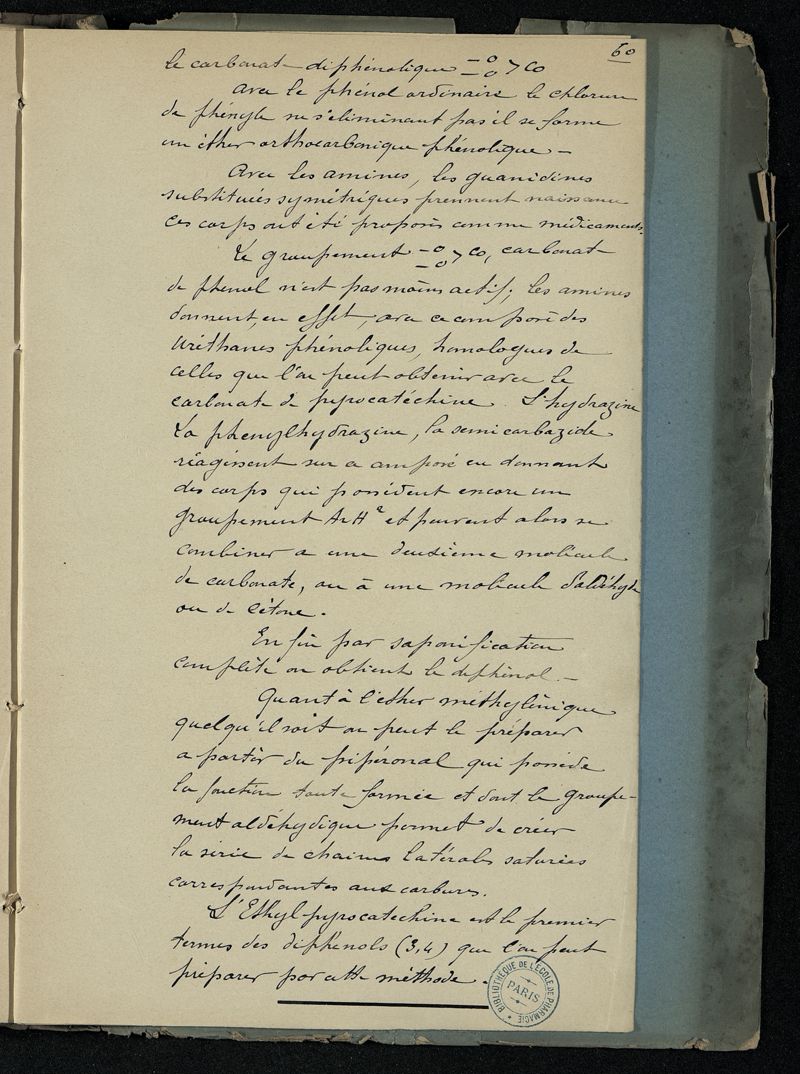 60
le carbonate diphénolique =O O> CO
Avec le phénol ordinaire le chlorure
de phényle ne s'éliminant pas il se forme
un éther orthocarbonique phénolique —
Avec les amines, les guanidines
substituées symétriques prennent naissance
ces corps ont été proposés comme médicaments.
Le groupement —O —O > CO, carbonate
de phénol n'est pas moins actif; les amines
donnent, en effet, avec ce composé des
Uréthanes phénoliques, homologues de
celles que l'on peut obtenir avec le
carbonate de pyrocatéchine. L'hydrazine
La phenylhydrazine, la semicarbazide
réagissent sur ce composé en donnant
des corps qui possèdent encore un
groupement AzH² et peuvent alors se
combiner a une deuxième molécule
de carbonate, ou à une molécule d'aldéhyde
ou de cétone.
Enfin par saponification
complète on obtient le diphénol. —
Quant à l'éther méthylénique
quelqu'il soit on peut le préparer
a partir du pipéronal qui possède
la fonction toute formée et dont le groupe-
ment aldéhydique permet de créer
la série de chaines latérales saturées
correspondantes aux carbures.
L'Ethyl pyrocatechine est le premier
termes des diphénols (3,4) que l'on peut
préparer par cette méthode.
BIBLIOTHÈQUE DE L'ÉCOLE DE PHARMACIE
PARIS